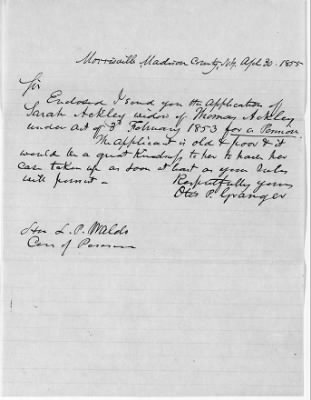 Morrisville Madison County, N.Y. Apl 30. 1855
Sir
Enclosed I send you the Application of
Sarah Ackley widow of Thomas Ackley
under act of 3d February 1853 for a Pension.
The applicant is old & poor & it
would be a great Kindness to her to have her
case taken up as soon at least as your rules
will permit -
Respectfully yours
Otis P. Granger
Hon L. P. Waldo
Com of Pensions